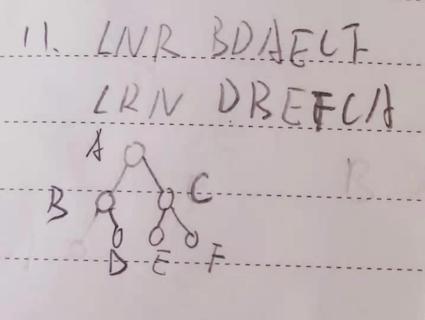 11. LNR BDAECF
LRN DBEFCA
A
B C
D E F